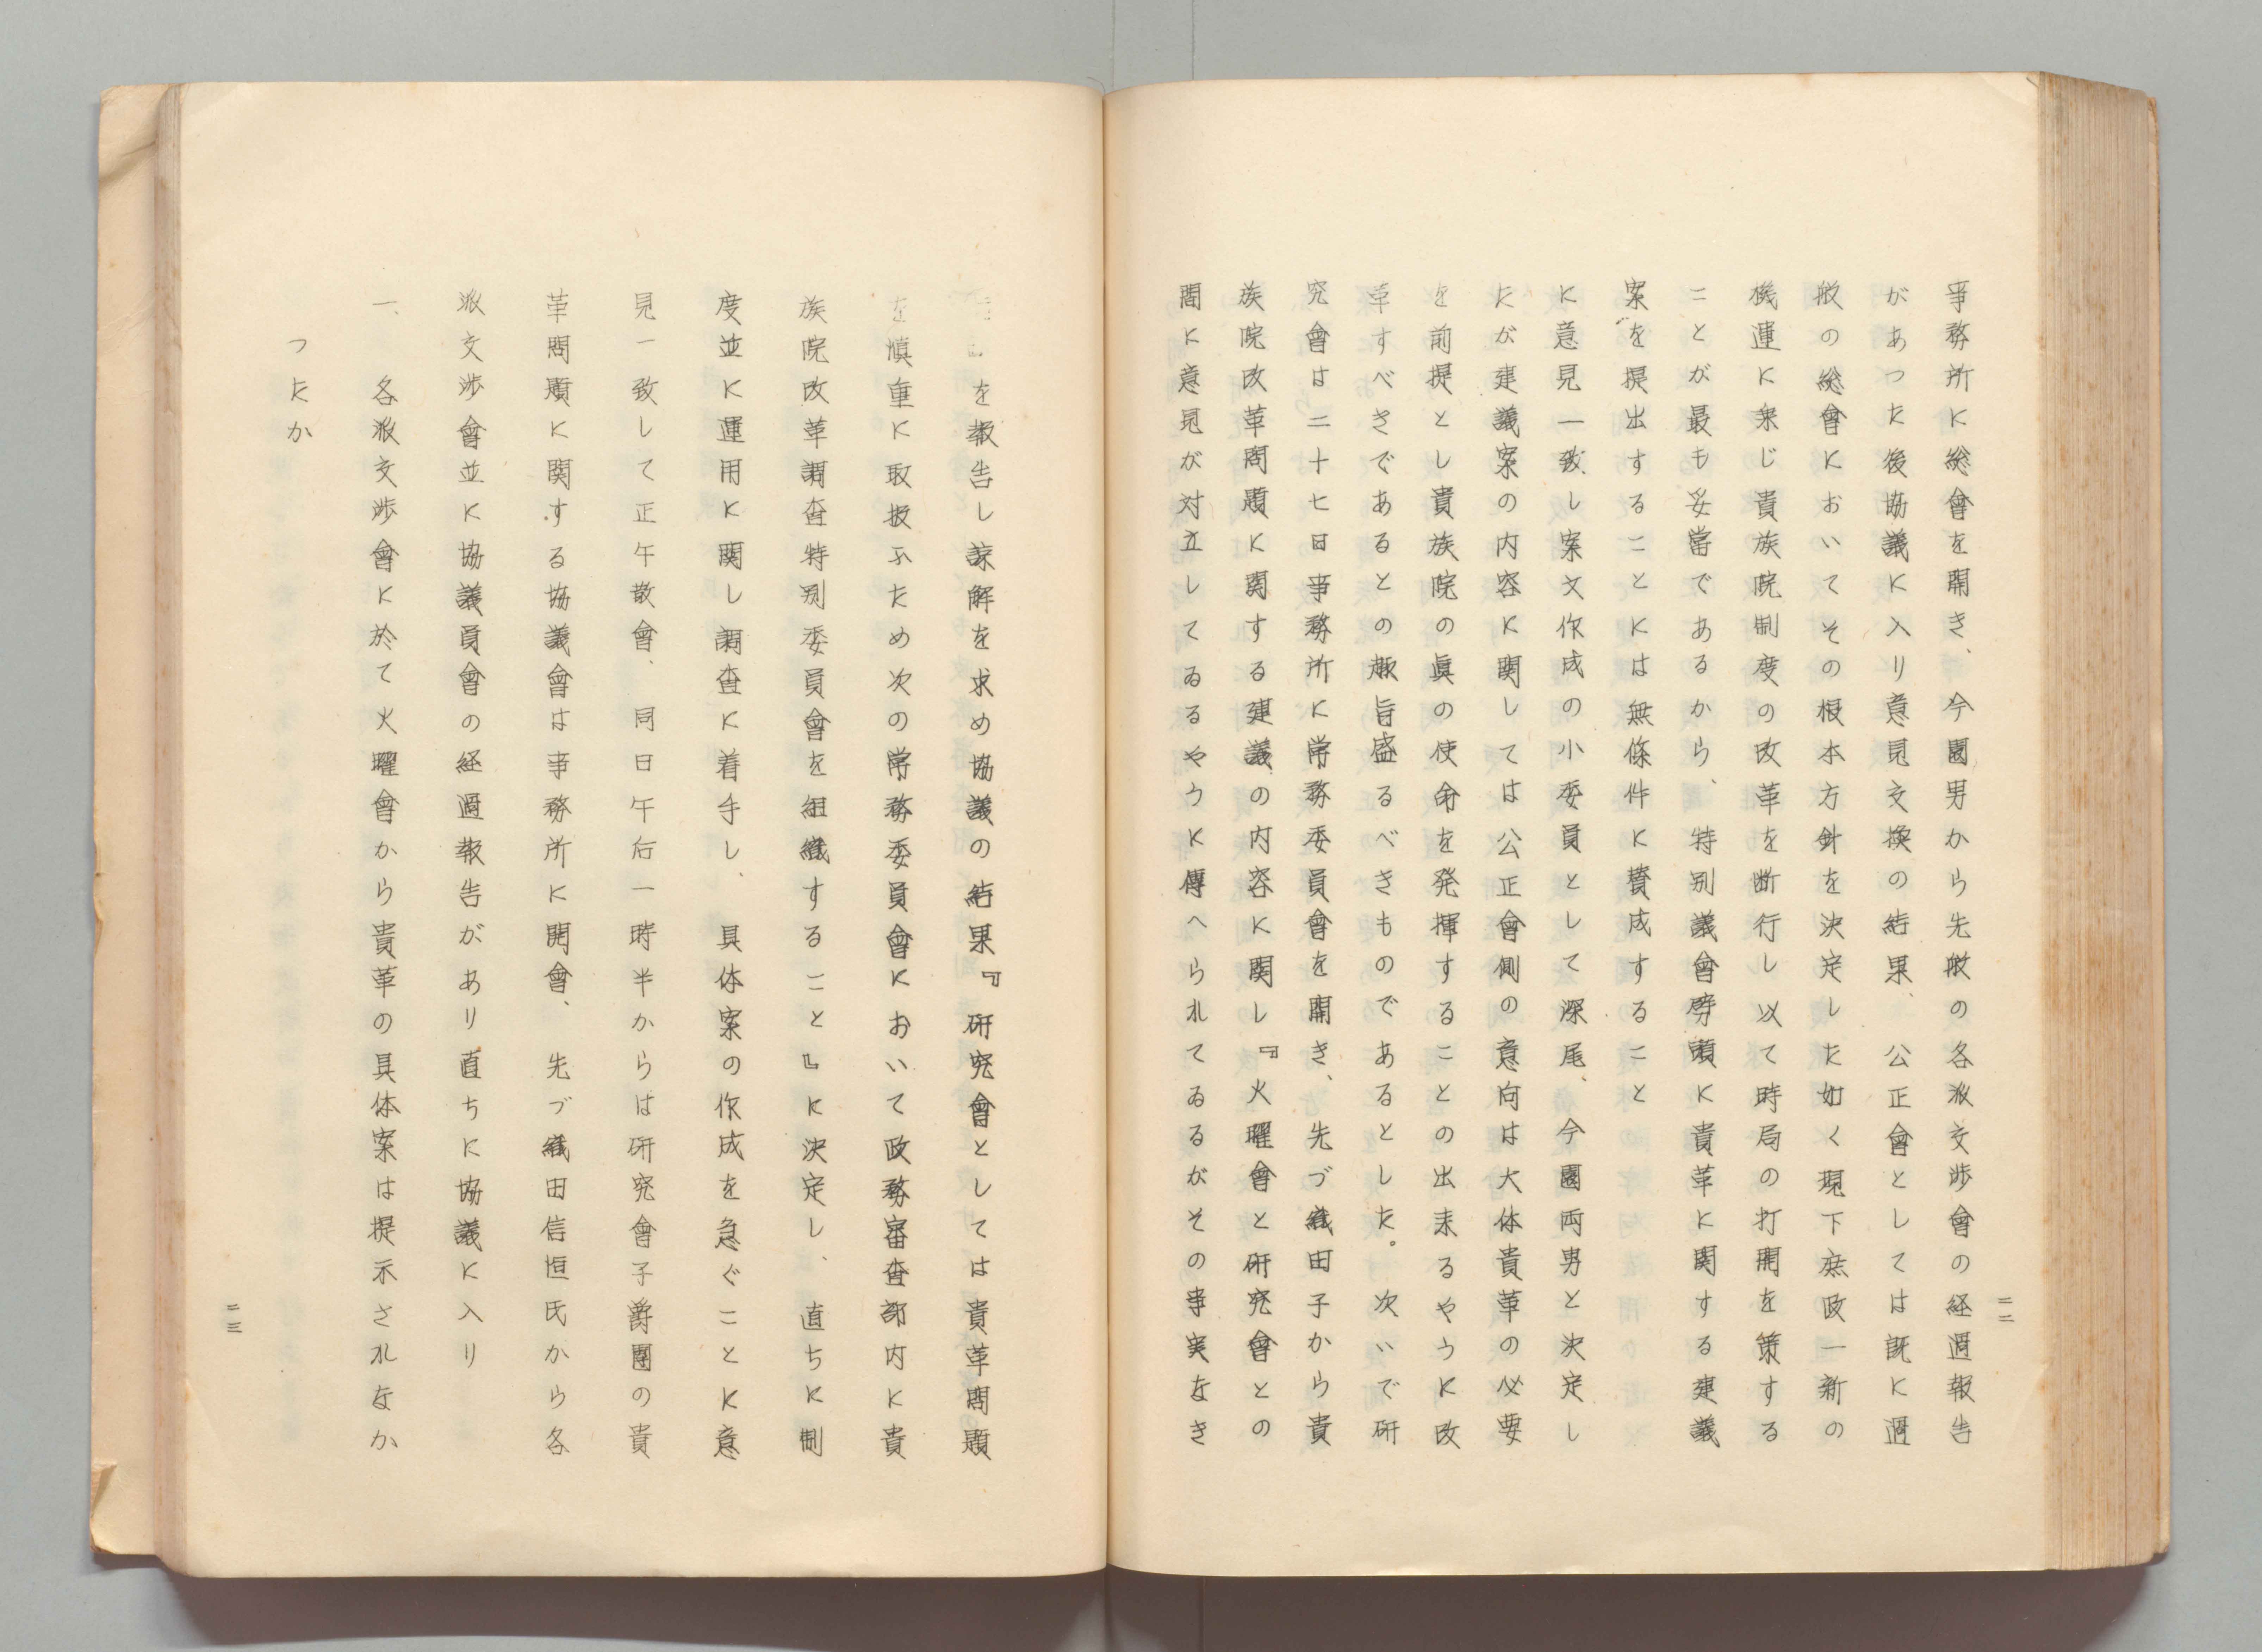 事務所に総會を開き、今園男から先般の各派交渉會の経過報告
があった後協議に入り意見交換の結果、公正會としては既に過
般の総會においてその根本方針を決定した如く現下庶政一新の
機運に乗じ貴族院制度の改革を断行し以て時局の打開を策する
ことが最も妥當であるから、特別議會劈頭に貴革に関する建議
案を提出することには無條件に賛成すること
に意見一致し案文作成の小委員として深尾、今園両男と決定し
たが建議案の内容に関しては公正會側の意向は大体貴革の必要
を前提とし貴族院の眞の使命を発揮することの出来るやうに改
革すべきであるとの趣旨盛るべきものであるとした。次いで研
究會は二十七日事務所に常務委員會を開き、先づ織田子から貴
族院改革問題に関する建議の内容に関し『火曜會と研究會との
間に意見が対立してゐるやうに傳へられてゐるがその事実なき
二二
を報告し諒解を求め協議の結果『研究會としては貴革問題
を慎重に取扱ふため次の常務委員會において政務審査部内に貴
族院改革調査特別委員會を組織すること』に決定し、直ちに制
度並に運用に関し調査に着手し、具体案の作成を急ぐことに意
見一致して正午散會、同日午后一時半からは研究會子爵團の貴
革問題に関する協議會は事務所に開會、先づ織田信恒氏から各
派交渉會並に協議員會の経過報告があり直ちに協議に入り
一、各派交渉會に於て火曜會から貴革の具体案は提示されなか
ったか
二三